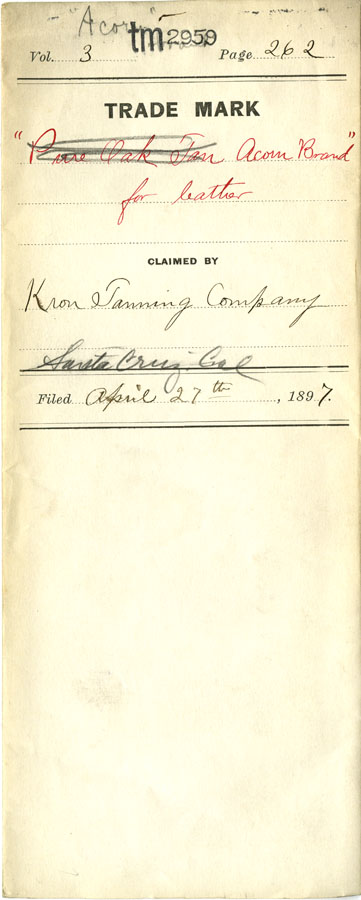 "Acorn"
tm 2959
Vol. 3 Page 262
TRADE MARK
"Pure Oak Tan Acorn Brand"
for leather
CLAIMED BY
Kron Tanning Company
Santa Cruz, Cal
Filed April 27th, 1897.